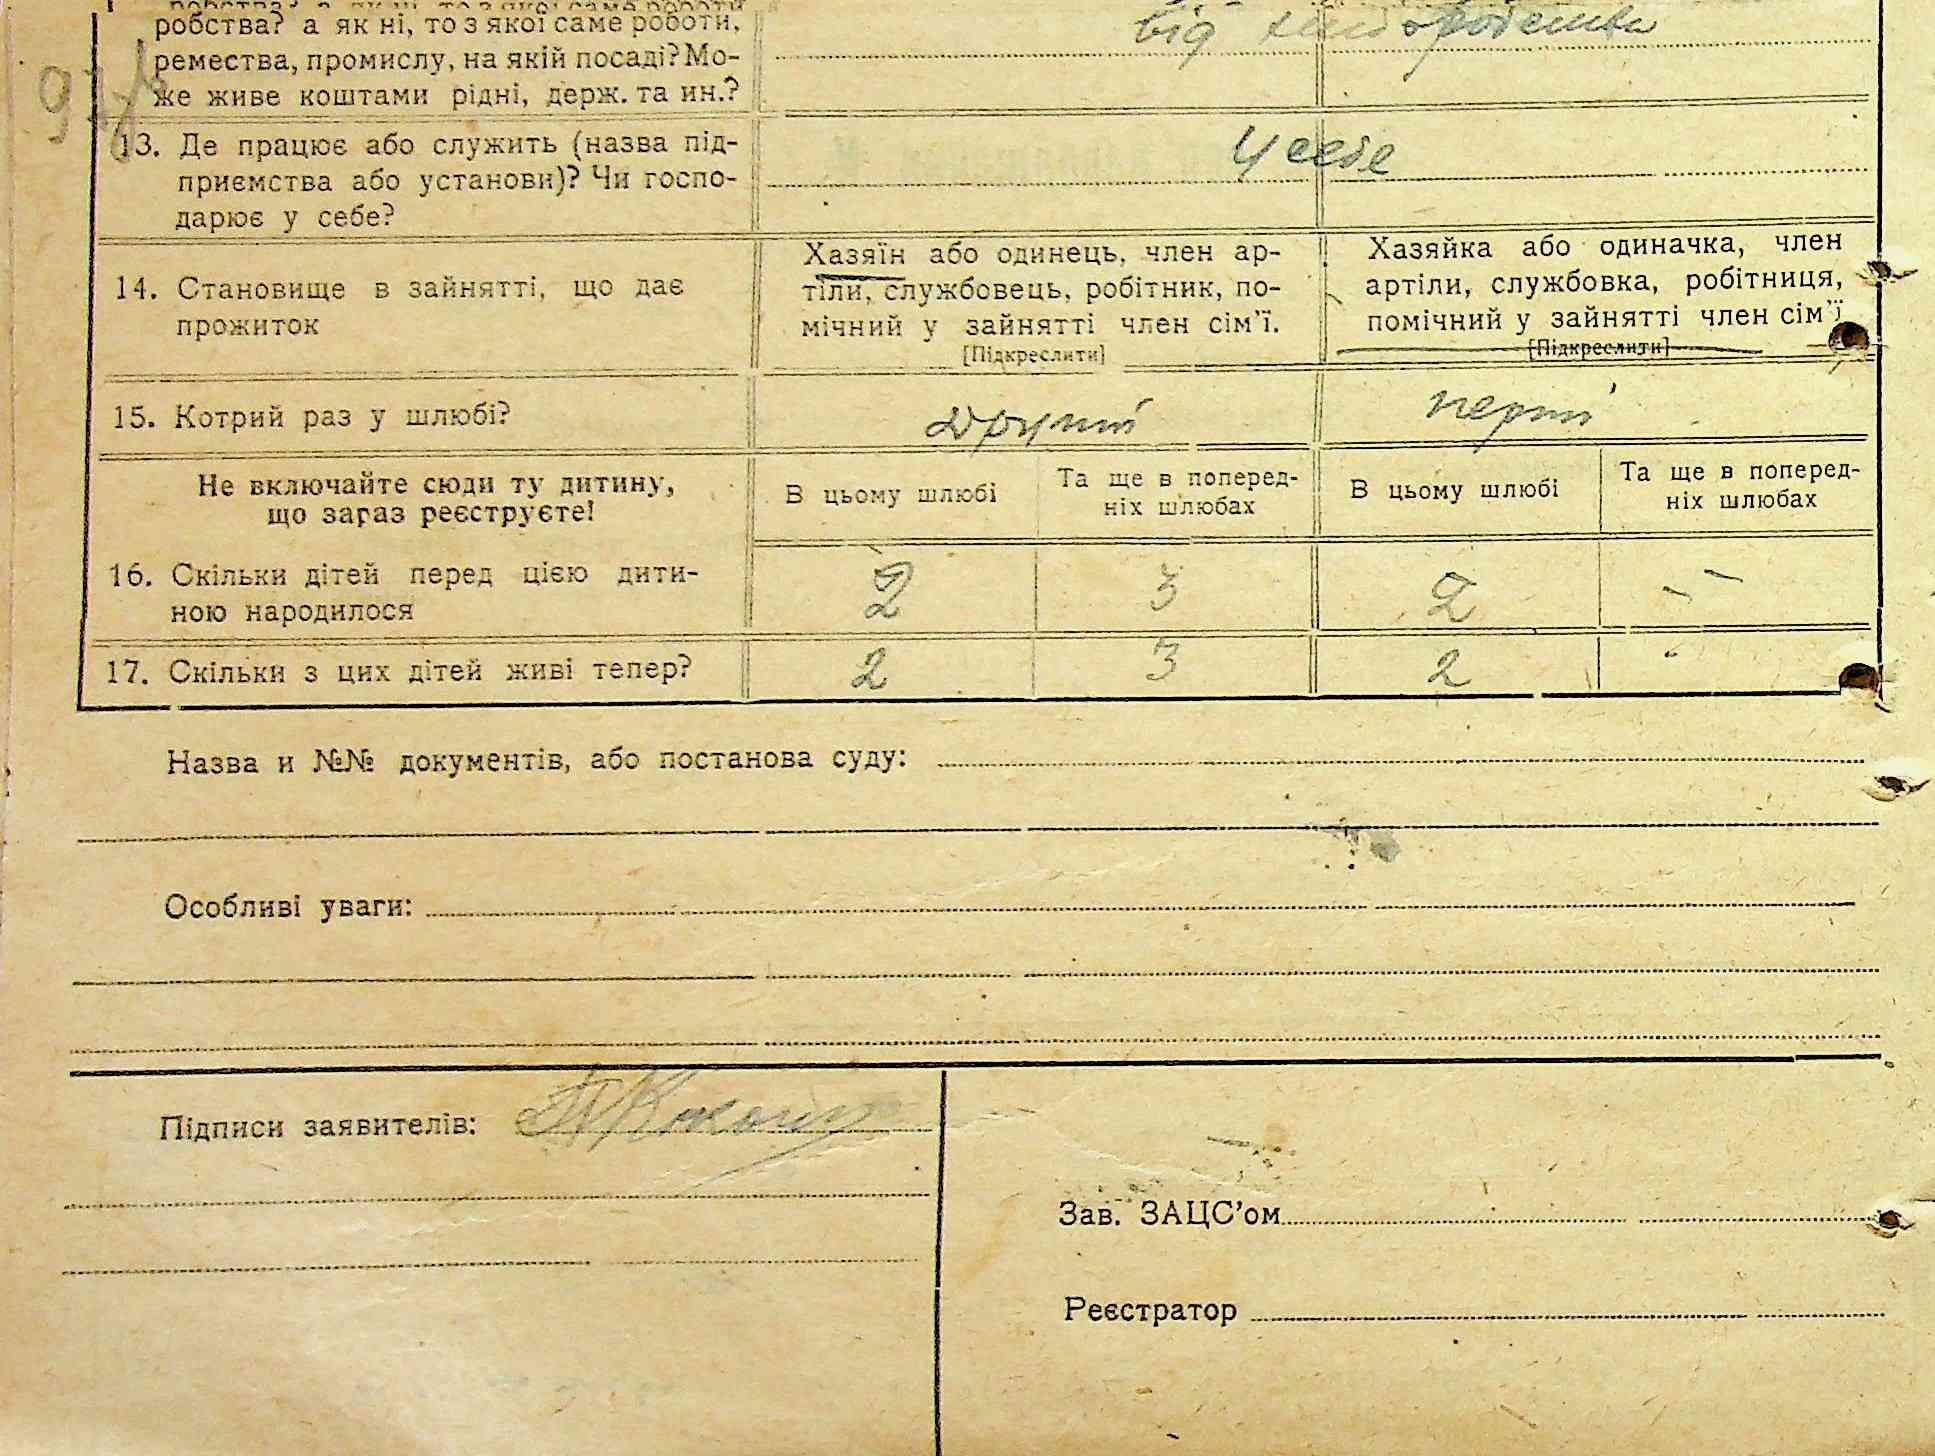 робства? а як ні, то з якої саме роботи,
ремества, промислу, на якій посаді? Мо-
же живе коштами рідні, держ. та ин.?
від
13. Де працює або служить (назва під-
приємства або установи)? Чи госпо-
дарює у себе?
У себе
14. Становище в зайнятті, що дає
прожиток
Хазяїн або одинець, член ар-
тіли, службовець, робітник, по-
мічний у зайнятті член сім'ї.
[Підкреслити]
Хазяйка або одиначка, член
артіли, службовка, робітниця,
помічний у зайнятті член сім'ї
[Підкреслити]
15. Котрий раз у шлюбі?
другий
перший
Не включайте сюди ту дитину,
що зараз реєструєте!
В цьому шлюбі
Та ще в поперед-
ніх шлюбах
В цьому шлюбі
Та ще в поперед-
ніх шлюбах
16. Скільки дітей перед цією дити-
ною народилося
2 3 2 – –
17. Скільки з цих дітей живі тепер?
2 3 2
Назва и №№ документів, або постанова суду:
Особливі уваги:
Підписи заявителів:
Зав. ЗАЦС'ом
Реєстратор